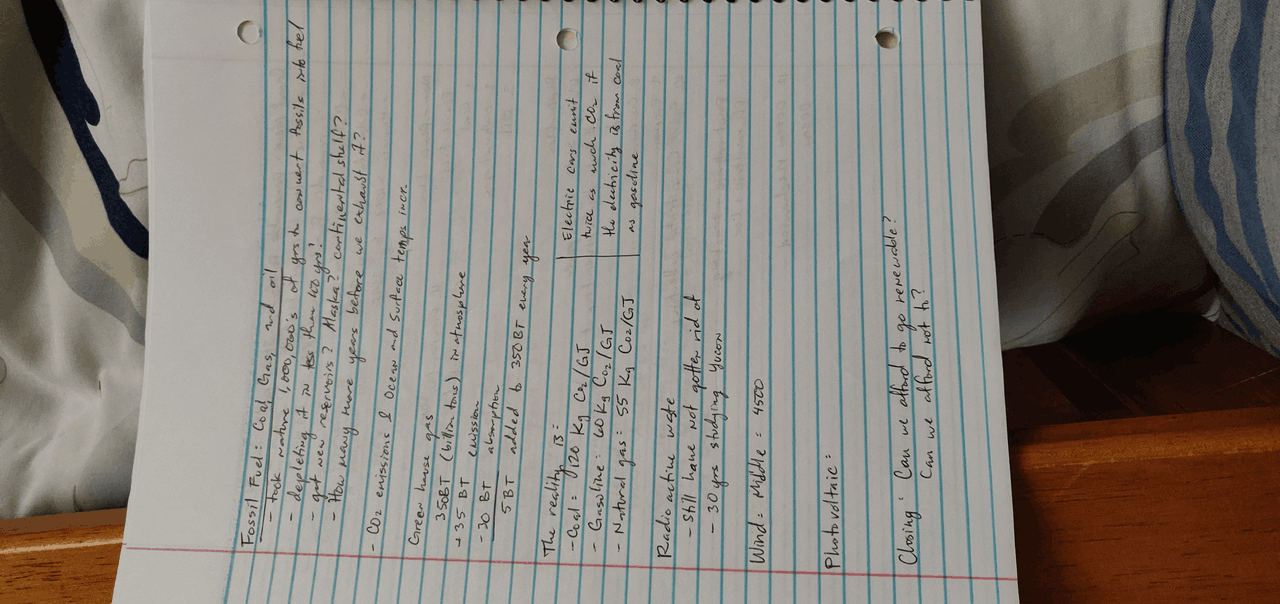 Fossil Fuel: Coal, Gas, and oil
- took nature 1,000,000's of yrs to convert fossils into fuel
- depleting it in less than 100 yrs?
- got new reservoirs? Alaska? continental shelf?
- How many more years before we exhaust it?
- CO2 emissions & Ocean and Surface temps incr.
Green house gas
350BT (billion tons) in atmosphere
+35 BT emission
-30 BT absorption
5BT added to 350BT every year
The reality is:
- Coal: 120 Kg CO2/GJ
- Gasoline: 60 Kg CO2/GJ
- Natural gas: 55 Kg CO2/GJ
Electric cars emit
twice as much CO2 if
the electricity is from coal
as gasoline
Radio active waste
- Still have not gotten rid of
- 30 yrs studying Yucon
Wind: Middle: 4500
Photovoltaic:
Closing: Can we afford to go renewable?
Can we afford not to?